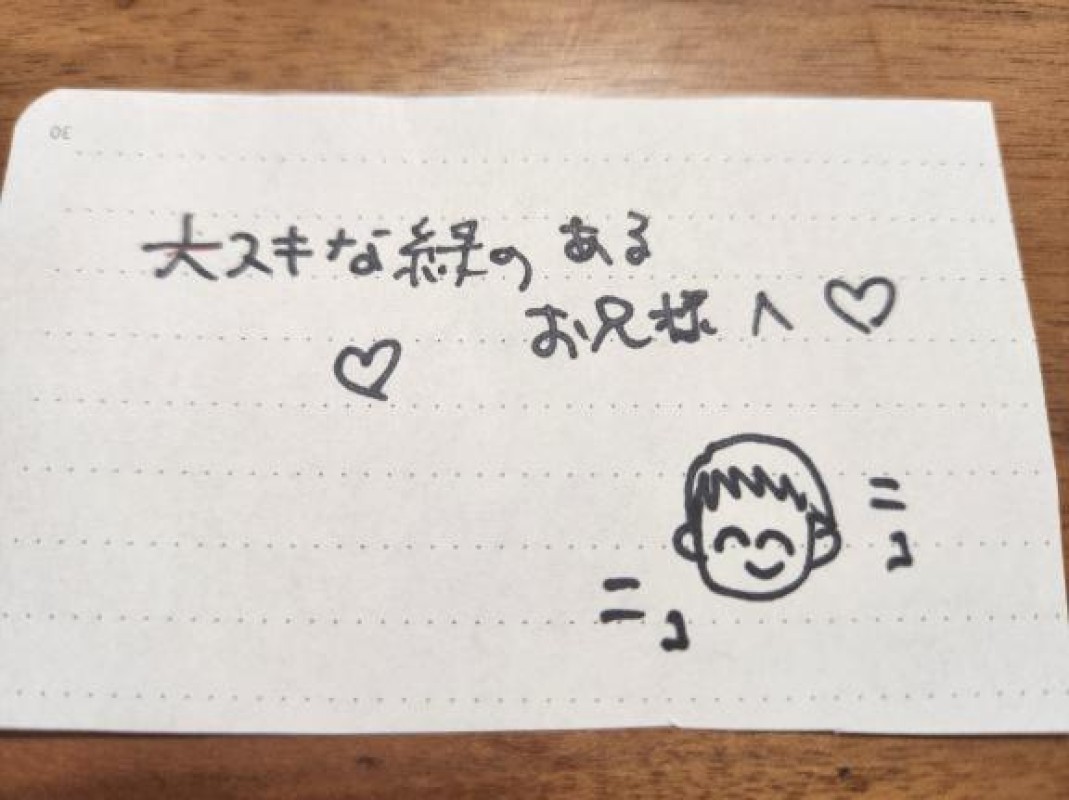 30
大スキな縁のある
お兄様へ♡
♡
ニョ
ニョ